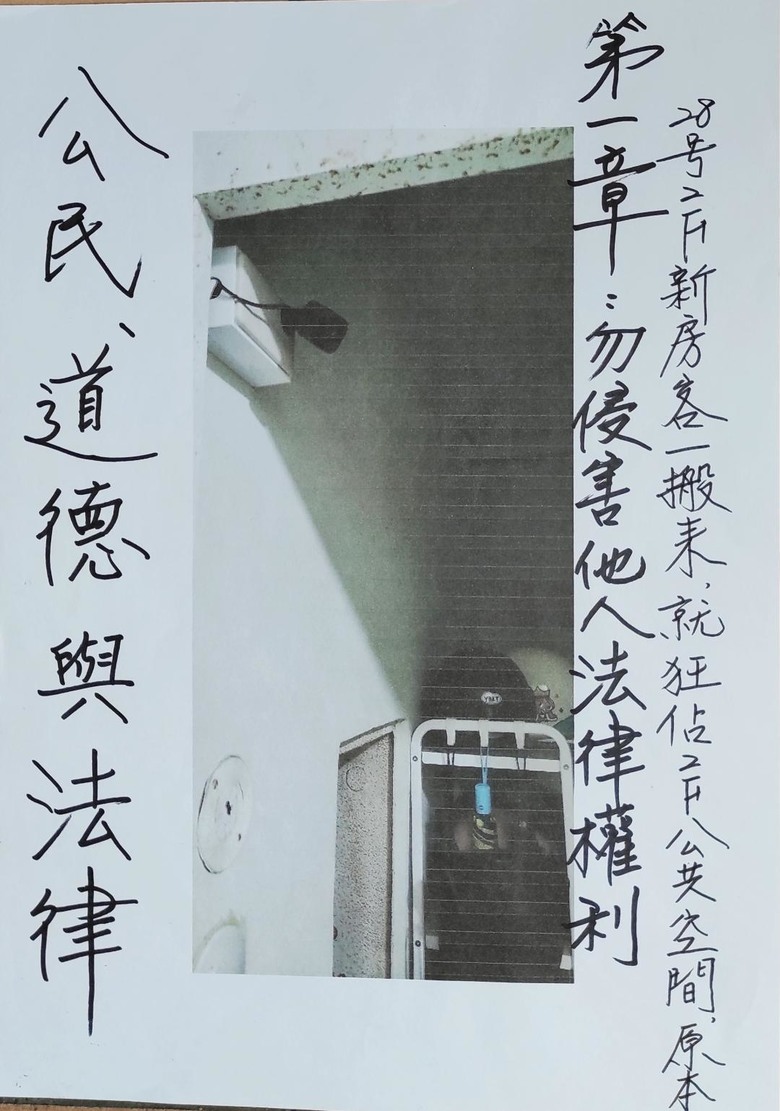 28号2F新房客一搬来,就狂佔2F公共空間,原本
第一章:勿侵害他人法律權利
公民、道德與法律